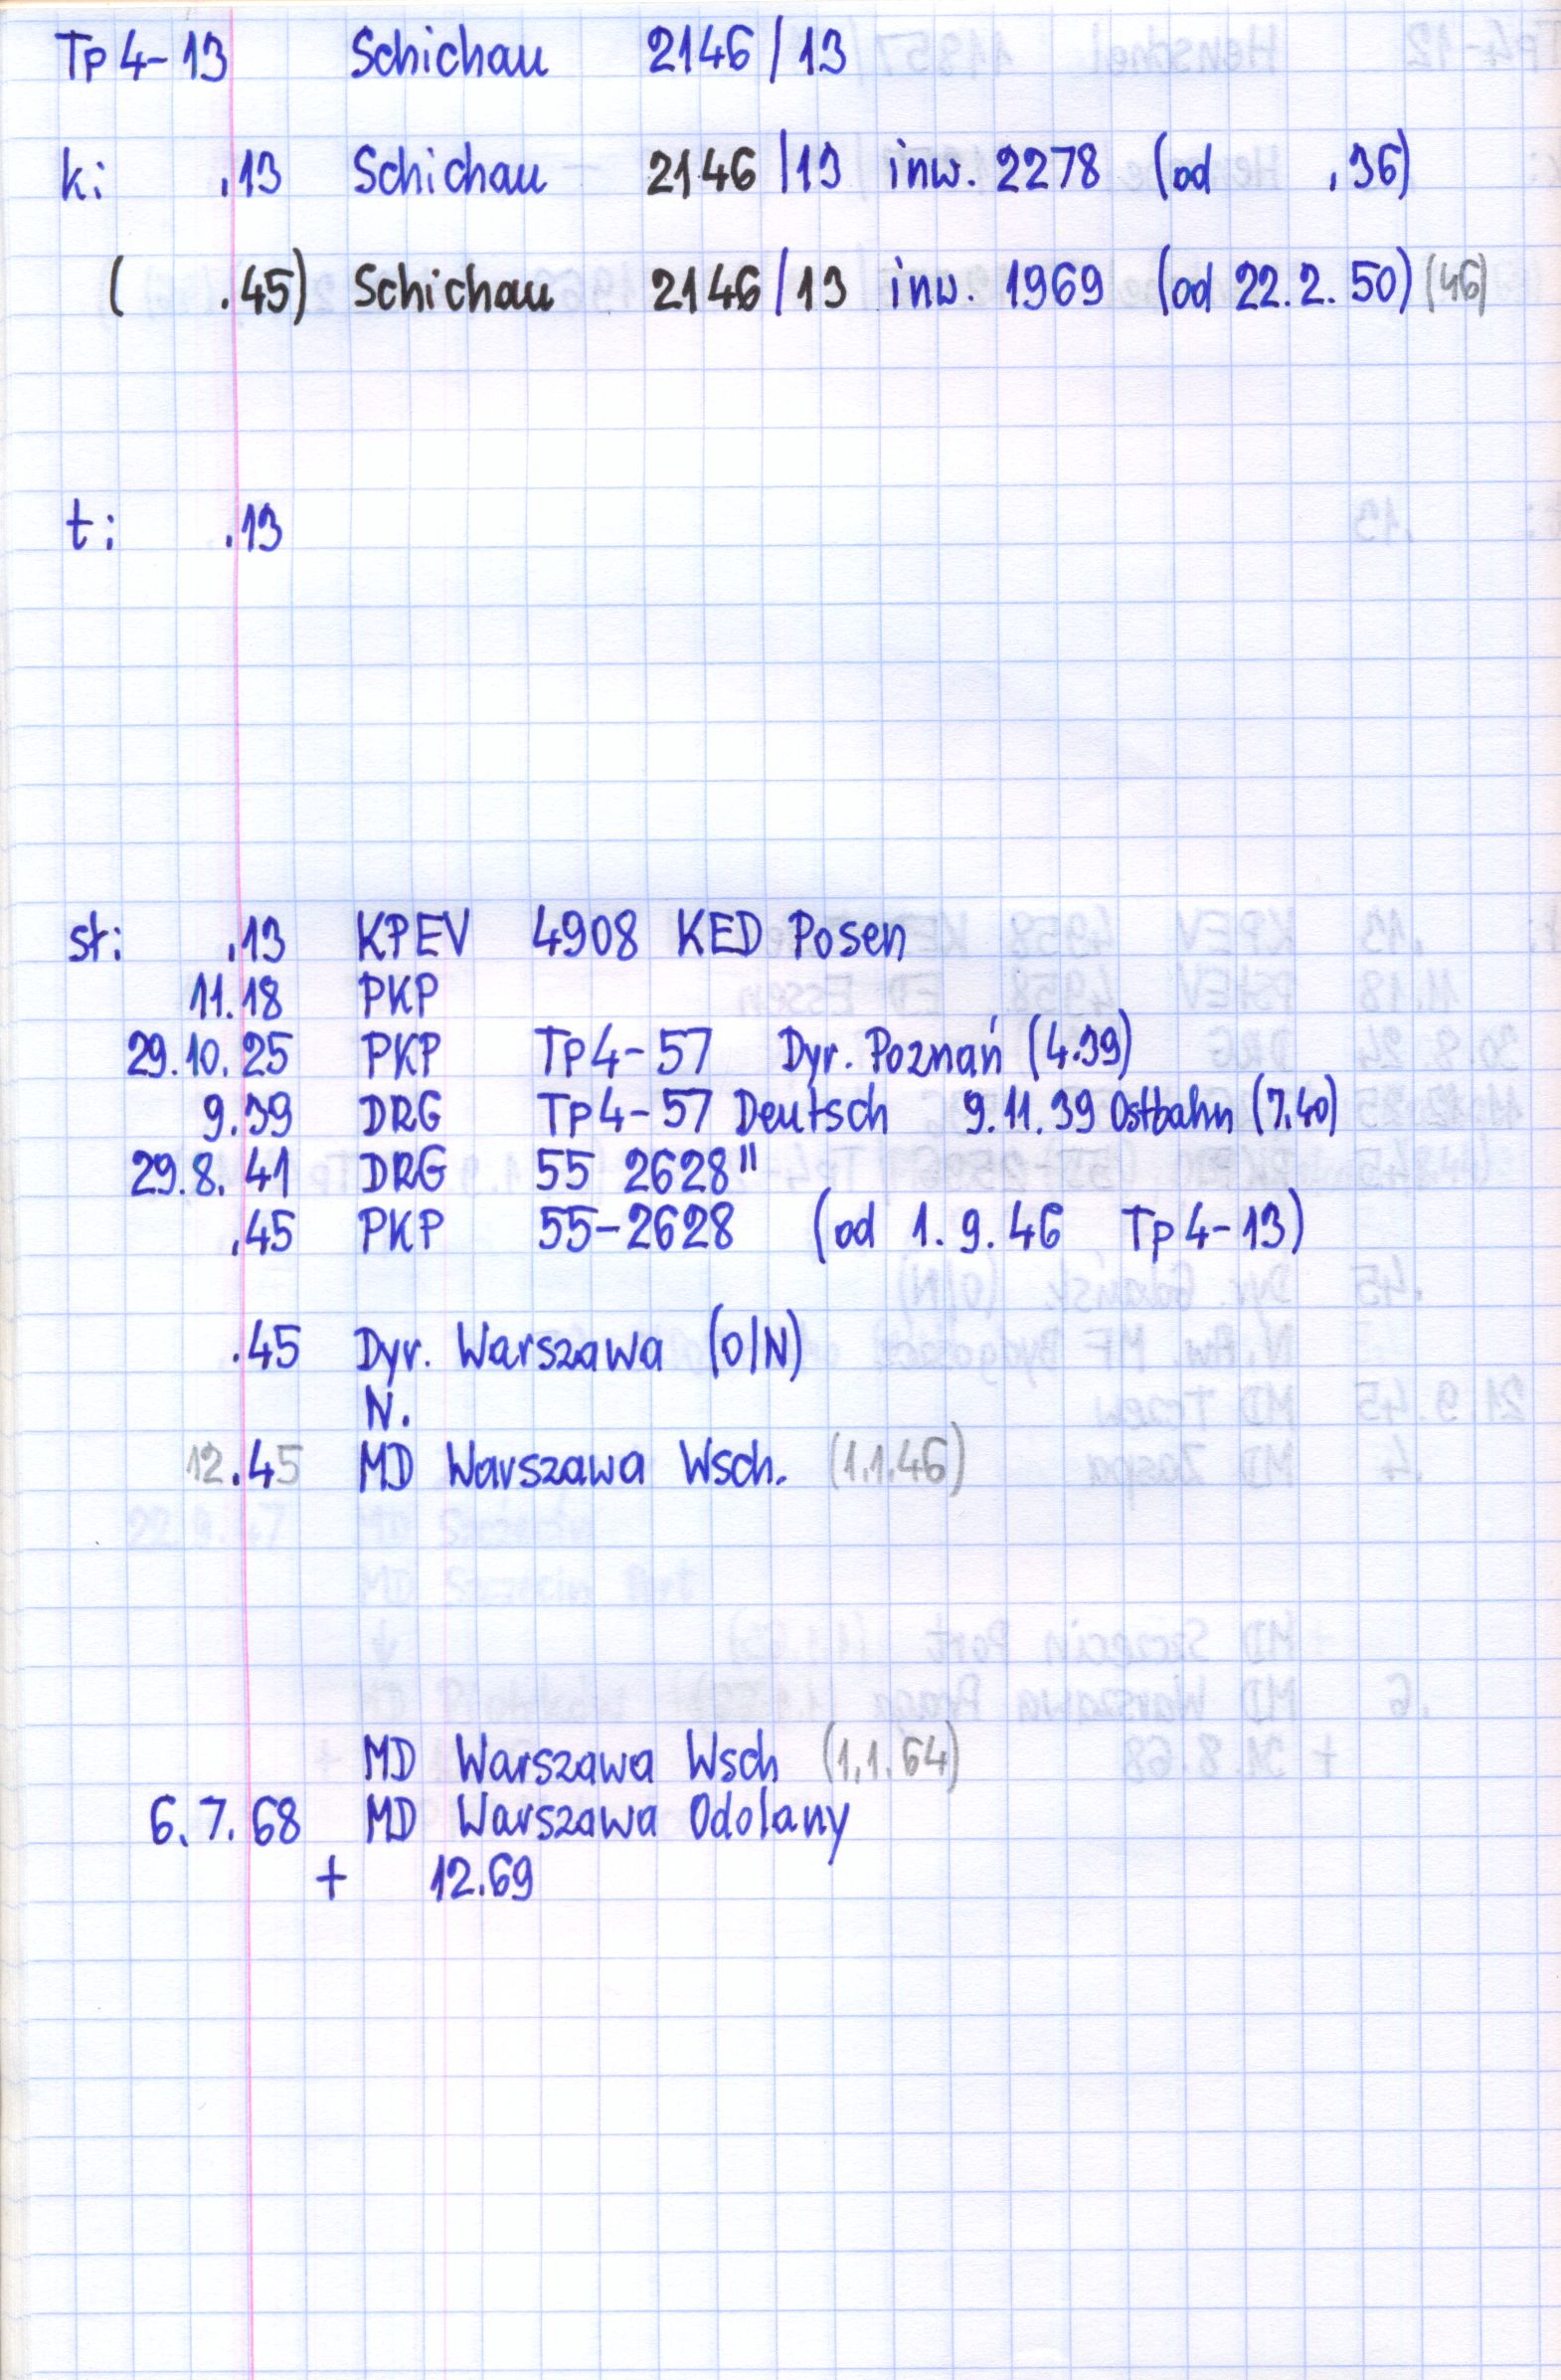 Tp 4-13 Schichau 2146/13
k: .13 Schichau 2146/13 inw. 2278 (od .36)
( .45) Schichau 2146/13 inw. 1969 (od 22.2.50) (46)
t: .13
st: .13 KPEV 4908 KED Posen
11.18 PKP
29.10.25 PKP Tp4-57 Dyr. Poznań (4.39)
9.39 DRG Tp4-57 Deutsch 9.11.39 Ostbahn (7.40)
29.8.41 DRG 55 2628"
.45 PKP 55-2628 (od 1.9.46 Tp4-13)
.45 Dyr. Warszawa (O/N)
N.
12.45 MD Warszawa Wsch. (1.1.46)
MD Warszawa Wsch (1.1.64)
6.7.68 MD Warszawa Odolany
+ 12.69